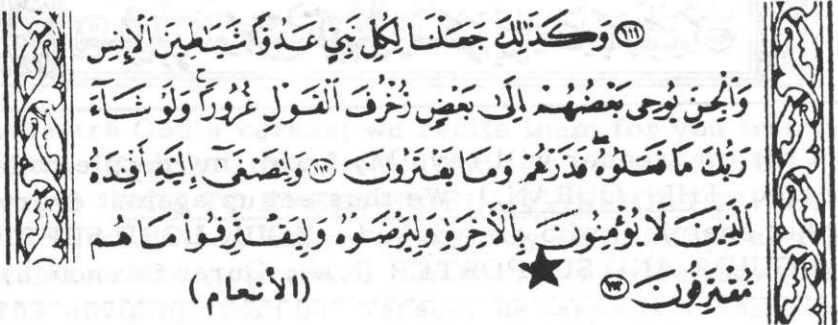 ﴿١١١﴾ وَكَذَٰلِكَ جَعَلْنَا لِكُلِّ نَبِيٍّ عَدُوًّا شَيَاطِينَ الْإِنسِ
وَالْجِنِّ يُوحِي بَعْضُهُمْ إِلَىٰ بَعْضٍ زُخْرُفَ الْقَوْلِ غُرُورًا ۚ وَلَوْ شَاءَ
رَبُّكَ مَا فَعَلُوهُ ۖ فَذَرْهُمْ وَمَا يَفْتَرُونَ ﴿١١٢﴾ وَلِتَصْغَىٰ إِلَيْهِ أَفْئِدَةُ
الَّذِينَ لَا يُؤْمِنُونَ بِالْآخِرَةِ وَلِيَرْضَوْهُ وَلِيَقْتَرِفُوا مَا هُم
مُّقْتَرِفُونَ ﴿١١٣﴾ (الأنعام)